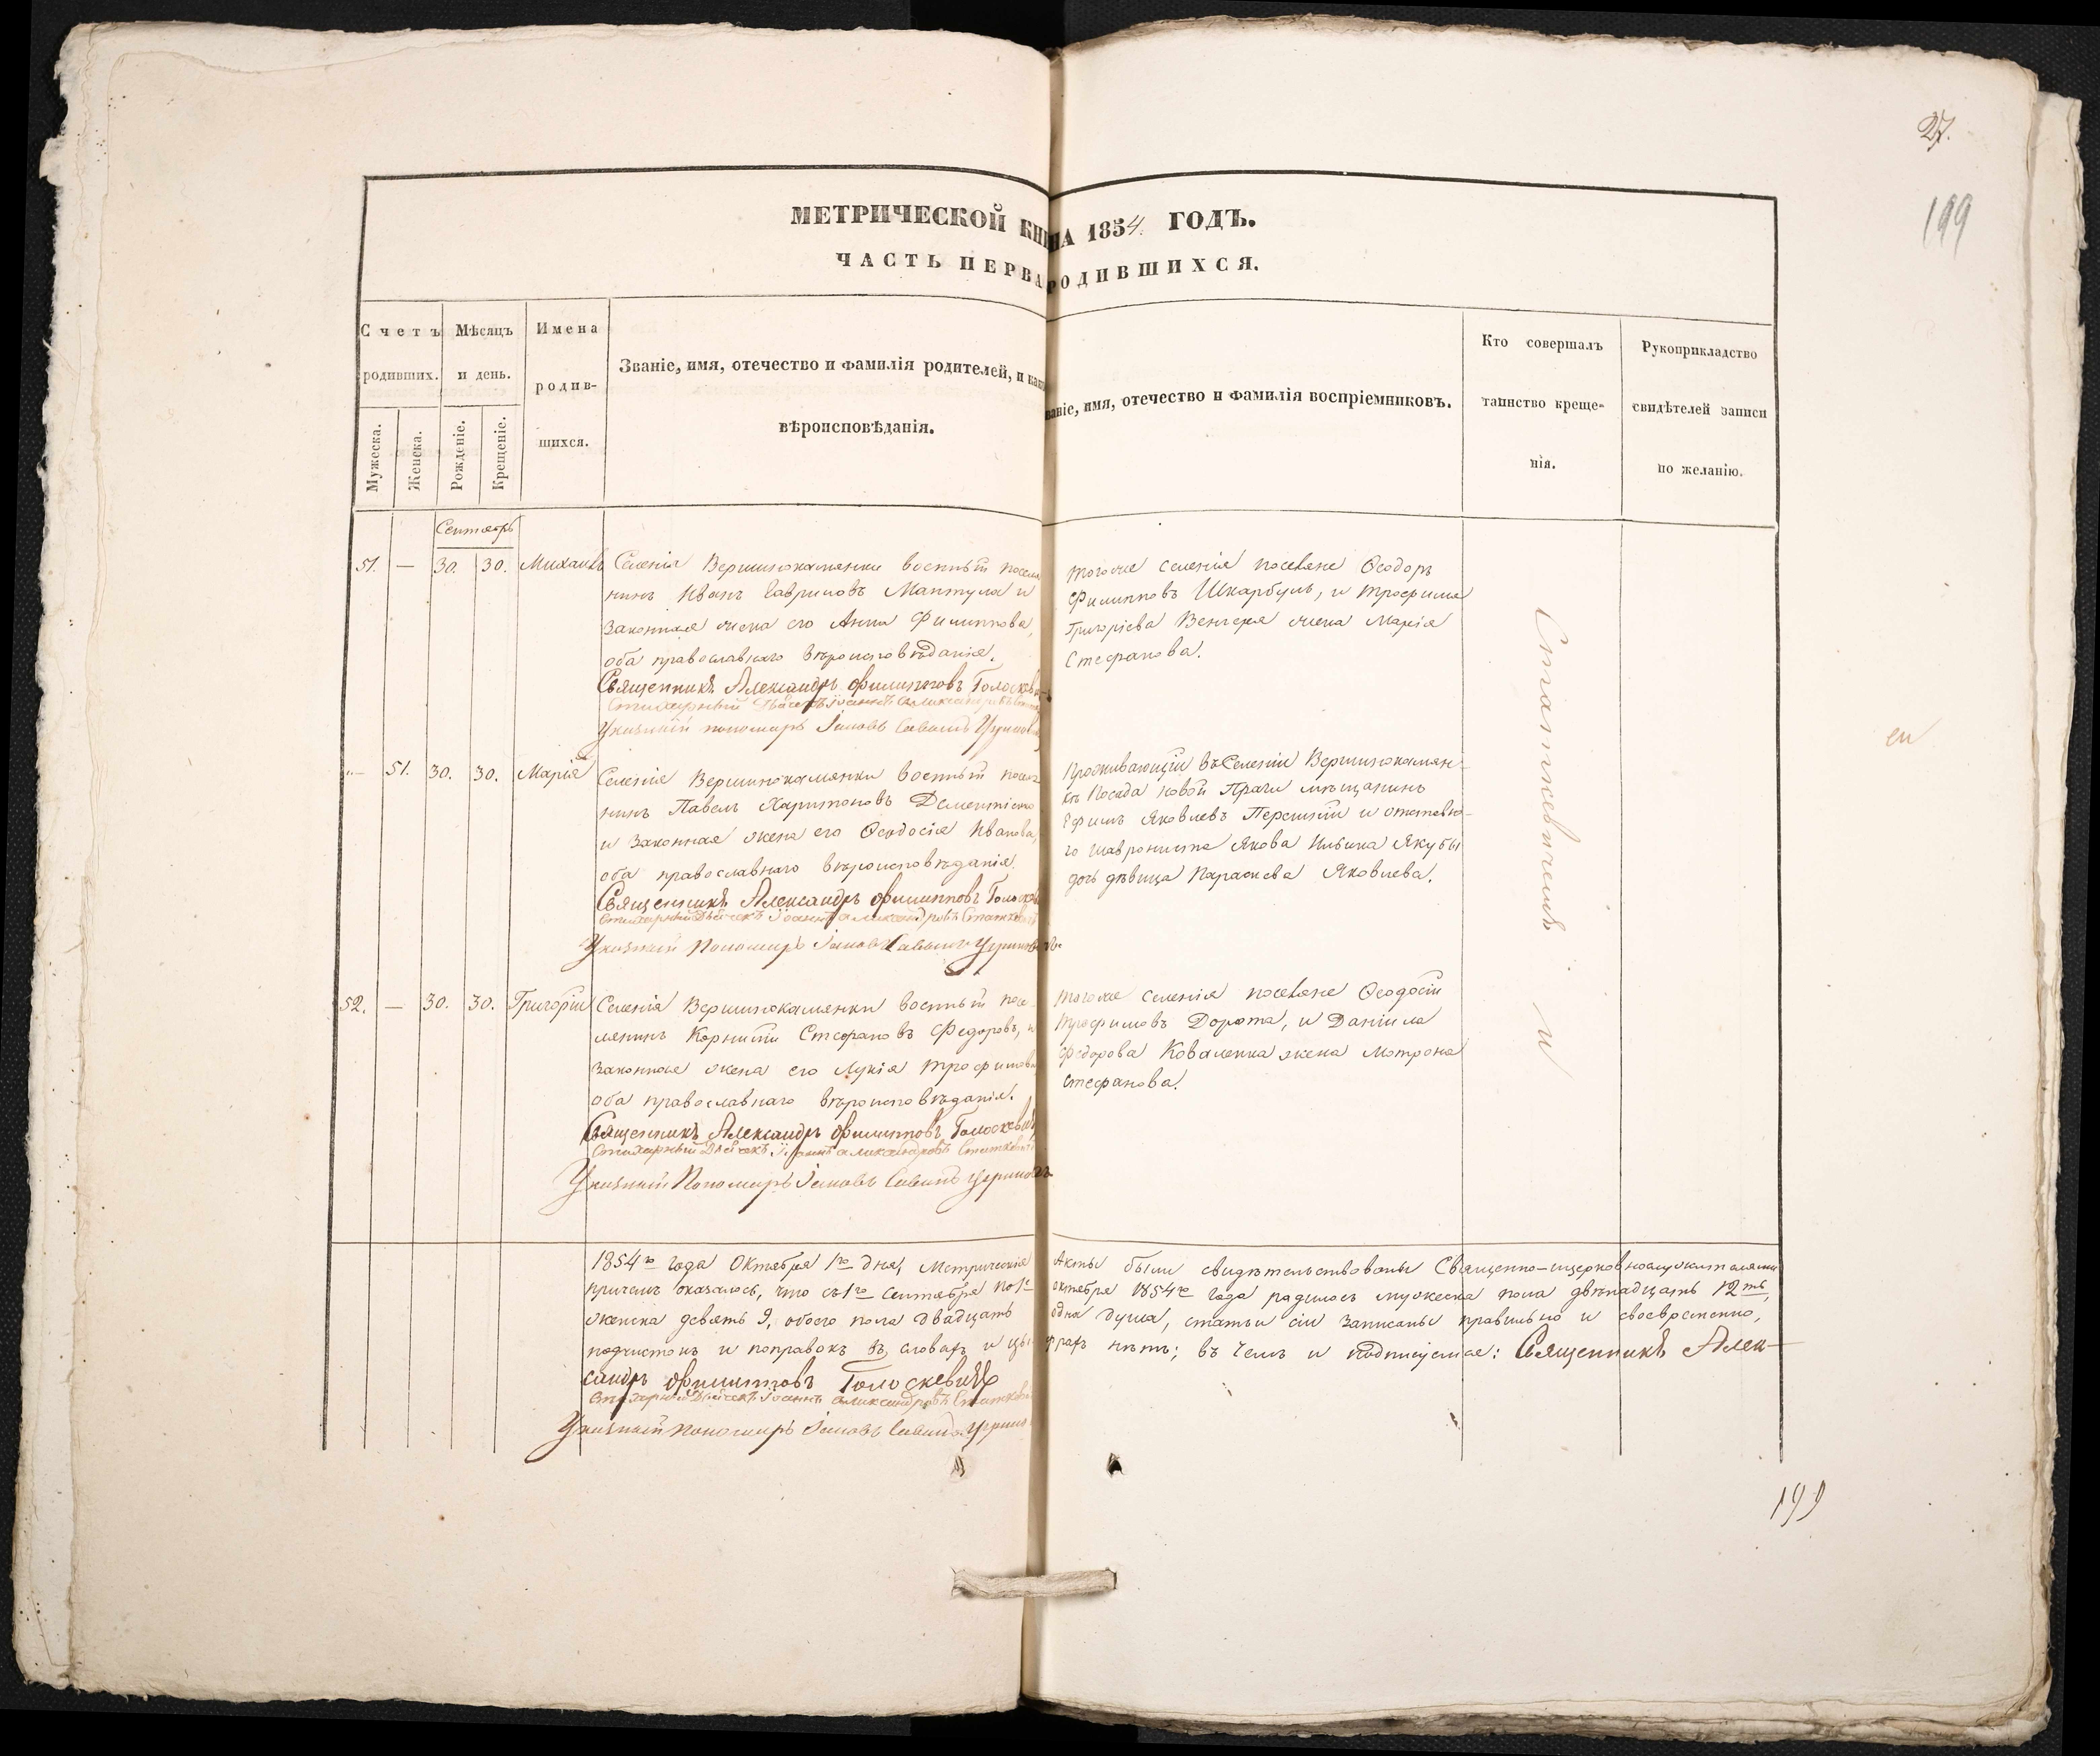 27.
199
МЕТРИЧЕСКОЙ КНИ НА 1854. ГОДЪ.
ЧАСТЬ ПЕРВА РОДИВШИХСЯ.
Счетъ родивших.
Мужеска.
Женска.
Мѣсяцъ и день.
Рожденіе.
Крещеніе.
Имена родив-
шихся.
Званіе, имя, отечество и фамилія родителей, и како
вѣроисповѣданія.
ваніе, имя, отечество и фамилія воспріемниковъ.
Кто совершалъ
таинство креще-
нія.
Рукоприкладство
свидѣтелей записи
по желанію.
Сентябрь
51. — 30. 30. Михаилъ
Селенія Вершинокаменки военный посел
нинъ Иванъ Гавриловъ Мантула и
законная жена его Анна Филиппова,
оба православнаго вѣроисповѣданія.
Священникъ Александръ Филипповъ
Указный пономарь Іаковъ
тогоже селенія поселяне Ѳеодоръ
Филипповъ Шкарбуль, и Трофима
Григоріева Венгера жена Марія
Стефанова.
— 51. 30. 30. Марія
Селенія Вершинокаменки военный посел
нинъ Павелъ Харитоновъ
и законная жена его Ѳеодосія Иванова,
оба православнаго вѣроисповѣданія.
Священникъ Александръ Филипповъ
Указный Пономарь Іаковъ
Проживающій въ Селеніи Вершинокамен-
кѣ Посада Новой Праги мѣщанинъ
Ефимъ Яковлевъ и отставно-
го Якова Якубы
дочь дѣвица Параскева Яковлева.
52. — 30. 30. Григорій
Селенія Вершинокаменки военный посе-
лянинъ Корнилій Стефановъ Федоровъ, и
законная жена его Лукія Трофимова
оба православнаго вѣроисповѣданія.
Священникъ Александръ Филипповъ Голоскевичъ
Указный Пономарь Іаковъ
тогоже селенія поселяне Ѳеодосій
Трофимовъ Дорота, и Даніила
Федорова Коваленка жена Мотрона
Стефанова.
и
1854го года Октября 1го дня, Метрическія
Акты были свидѣтельствованы Священно-церковнослужителями
причемъ оказалось, что съ 1го Сентября по 1е
октября 1854го года родилось мужеска пола двѣнадцать 12ть,
женска девять 9, обоего пола двадцать
одна душа, статьи сіи записаны правильно и своевременно,
подчистокъ и поправокъ въ словахъ и цы-
фрахъ нѣтъ; въ чемъ и подписуемся: Священникъ Алек-
сандръ Филипповъ Голоскевичъ
Указный Пономарь Іаковъ
199